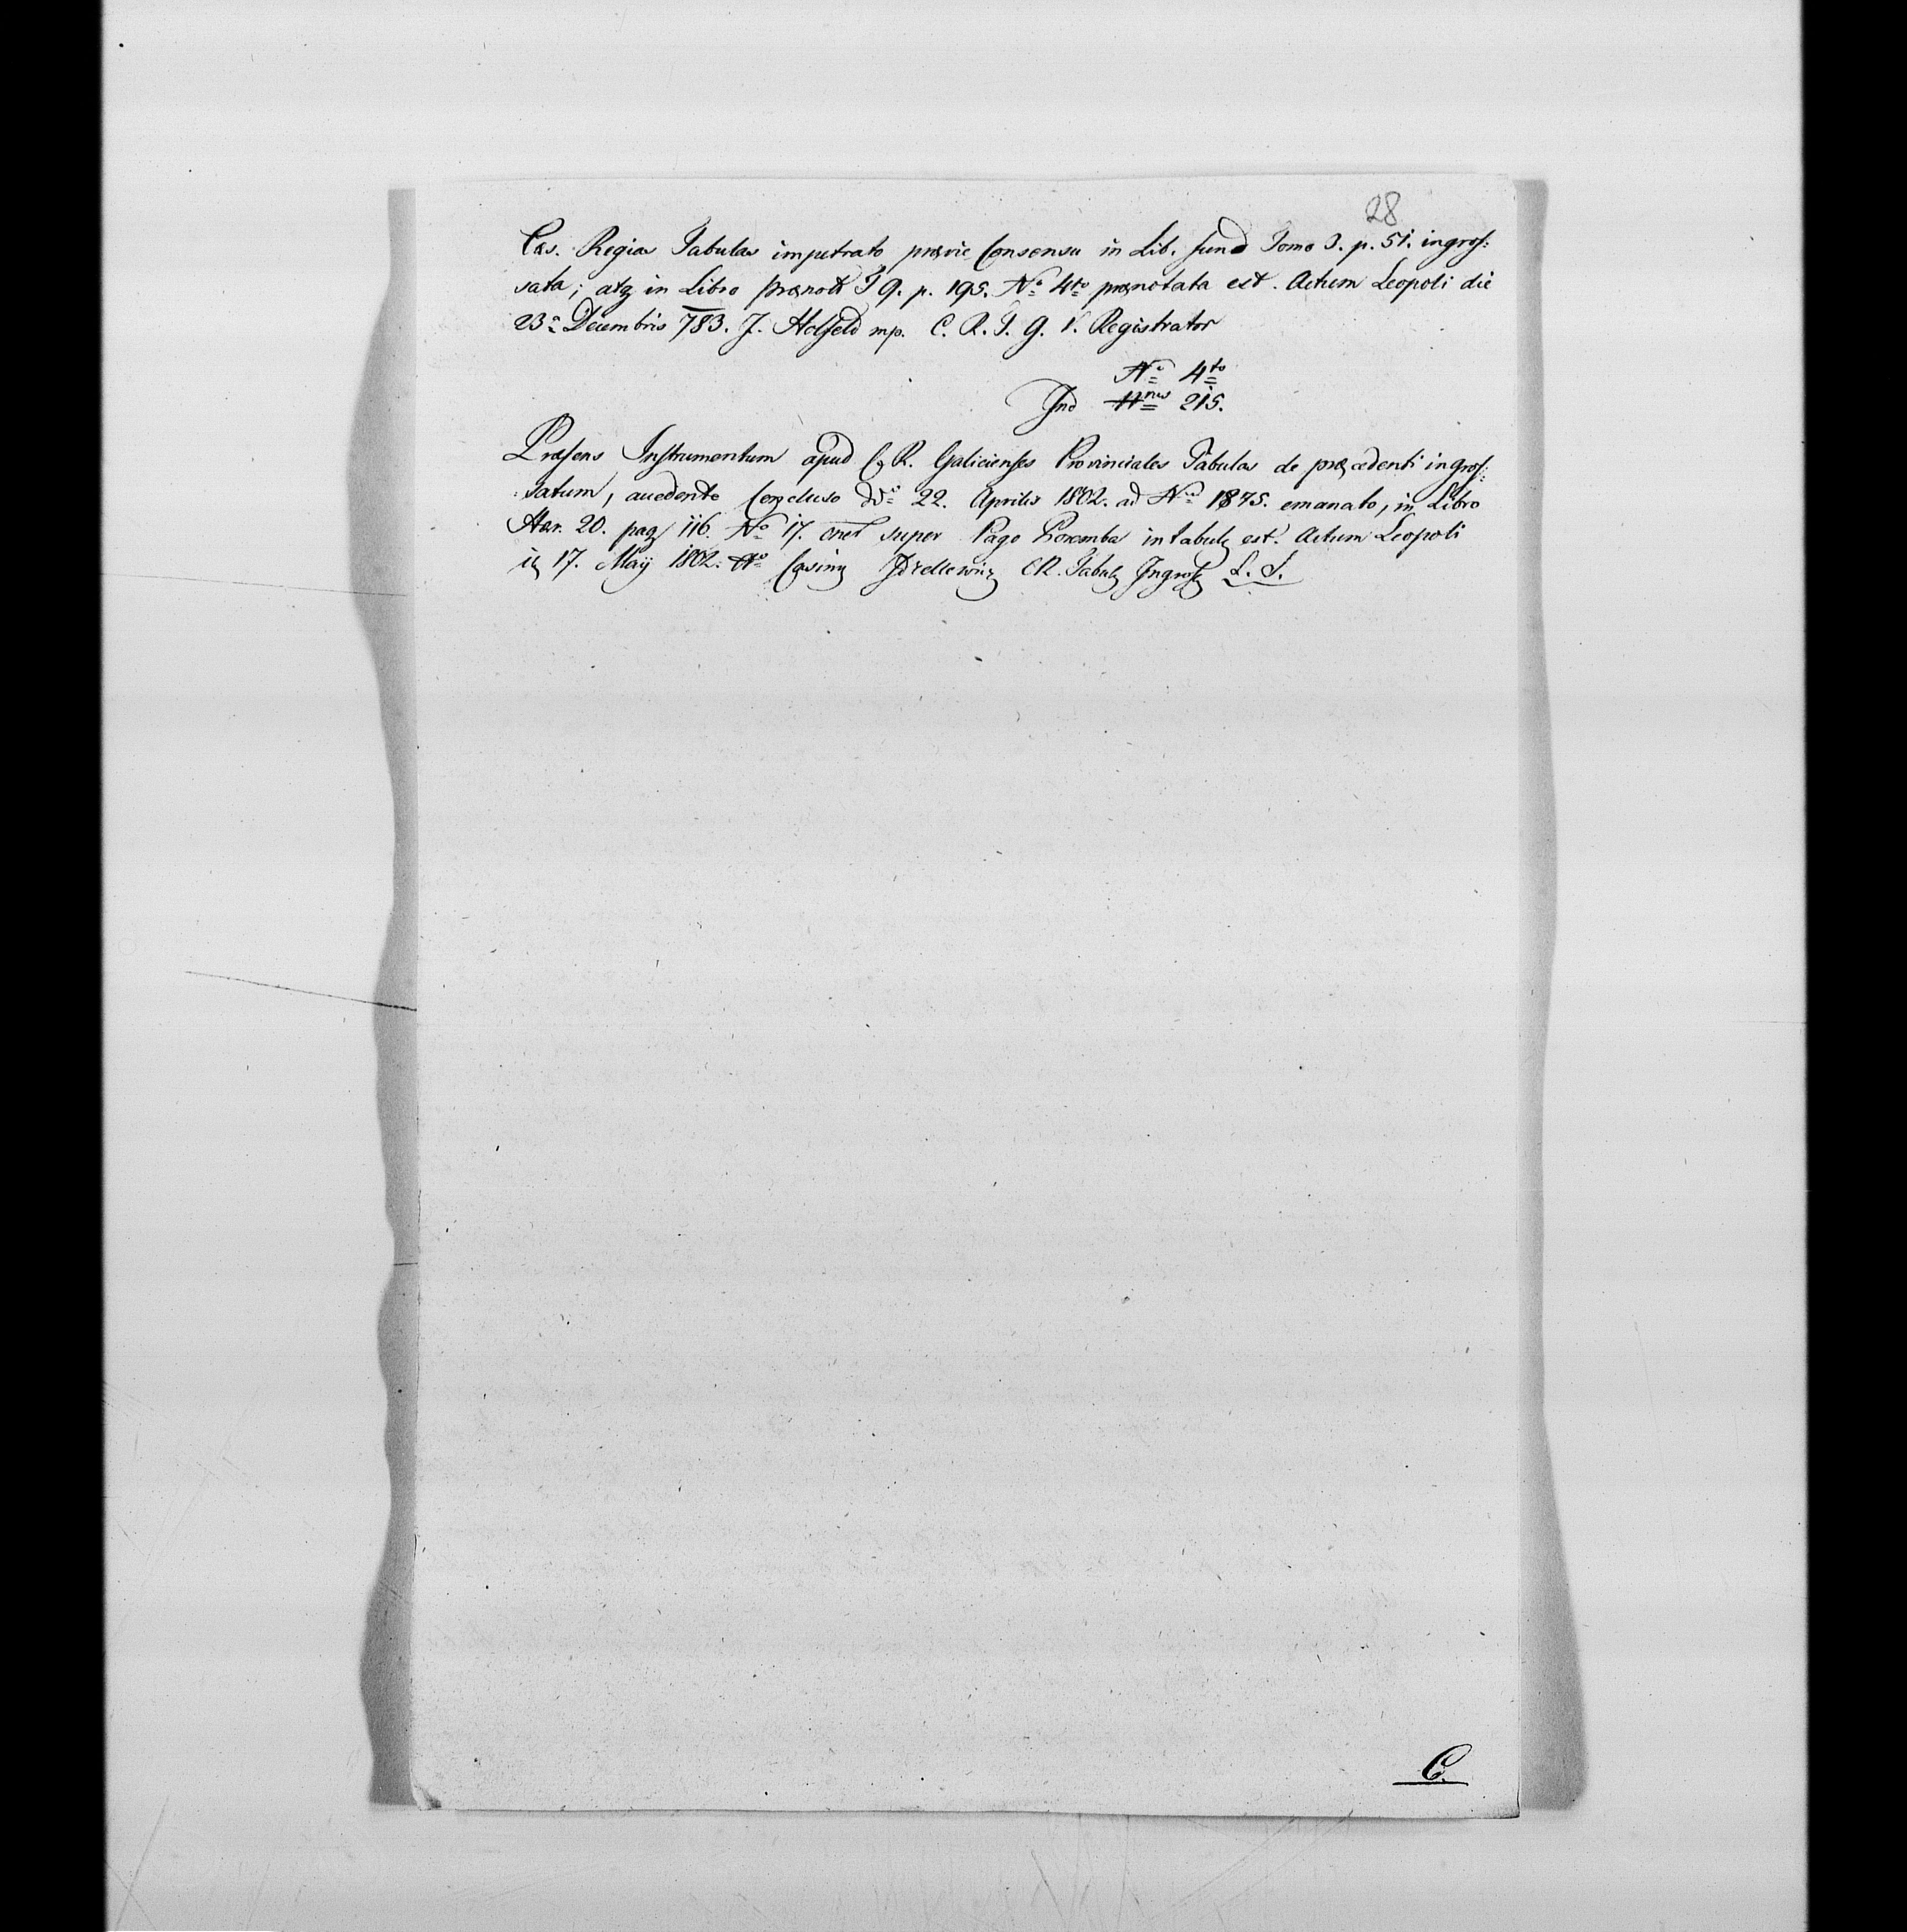 28
Cæs. Regias Tabulas impetrato prævie Consensu in Lib. fund Tomo 3. p. 51. ingros:
sata; atq in Libro prænott T 9. p. 195. No 4to prænotata est. Actum Leopoli die
23a Decembris 783. J. Holfeld mp. C. R. T. G. P. Registrator
No 4to
Ind Hnes 215.
Præsens Instrumentum apud C. R. Galicienses Provinciales Tabulas de præcedenti ingros:
satum, accedente Concluso ddo 22. Aprilis 1802. ad Num 1875. emanato, in Libro
Hær. 20. pag 116. No 17. oner super Pago Poremba intabul est. Actum Leopoli
17. Maÿ 1802. Casimir CR. Tabul Ingross L. S.
C.